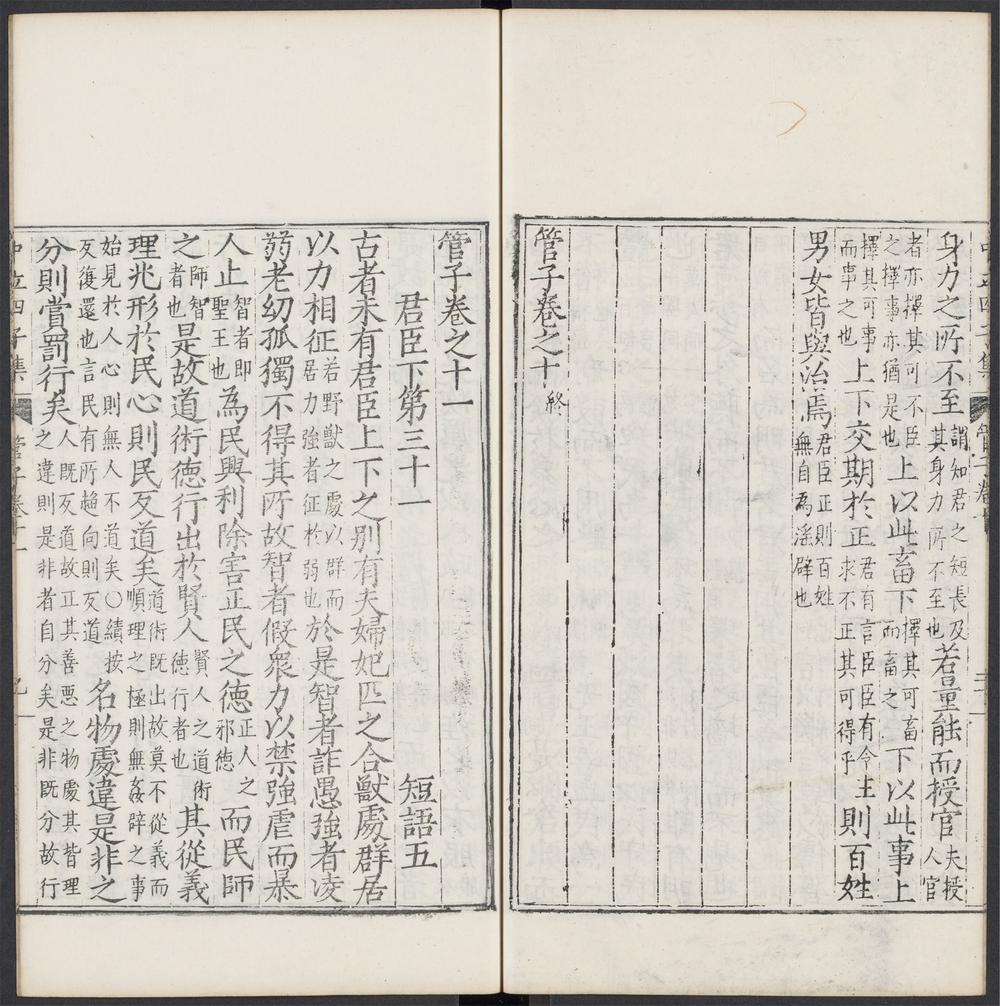 身力之所不至謂知君之短長及其身力所不至也若量能而授官夫授人官
者亦擇其可不臣之擇事亦猶是也上以此畜下擇其可畜而畜之下以此事上
擇其可事而事之也上下交期於正君有言臣臣有令求不正其可得乎主則百姓
男女皆與治焉君臣正則百姓無自為淫辟也
管子卷之十終
管子卷之十一
君臣下第三十一 短語五
古者未有君臣上下之別有夫婦妃匹之合獸處群居
以力相征若野獸之處以群而居力強者征於弱也於是智者詐愚強者凌
弱老幼孤獨不得其所故智者假衆力以禁強虐而暴
人止智者即聖王也為民興利除害正民之德正人之邪德而民師
之師智者也是故道術德行出於賢人賢人之道術德行者也其從義
理兆形於民心則民反道矣道術既出故莫不從義而順理之極則無姦辟之事
始見於人心則無人不道矣〇績按反復還也言民有所趨向則反道名物處違是非之
分則賞罰行矣人既反道故正其善惡之物處其皆理之違則是非者自分矣是非既分故行
中立四子集 管子卷十一
中立四子集 管子卷十